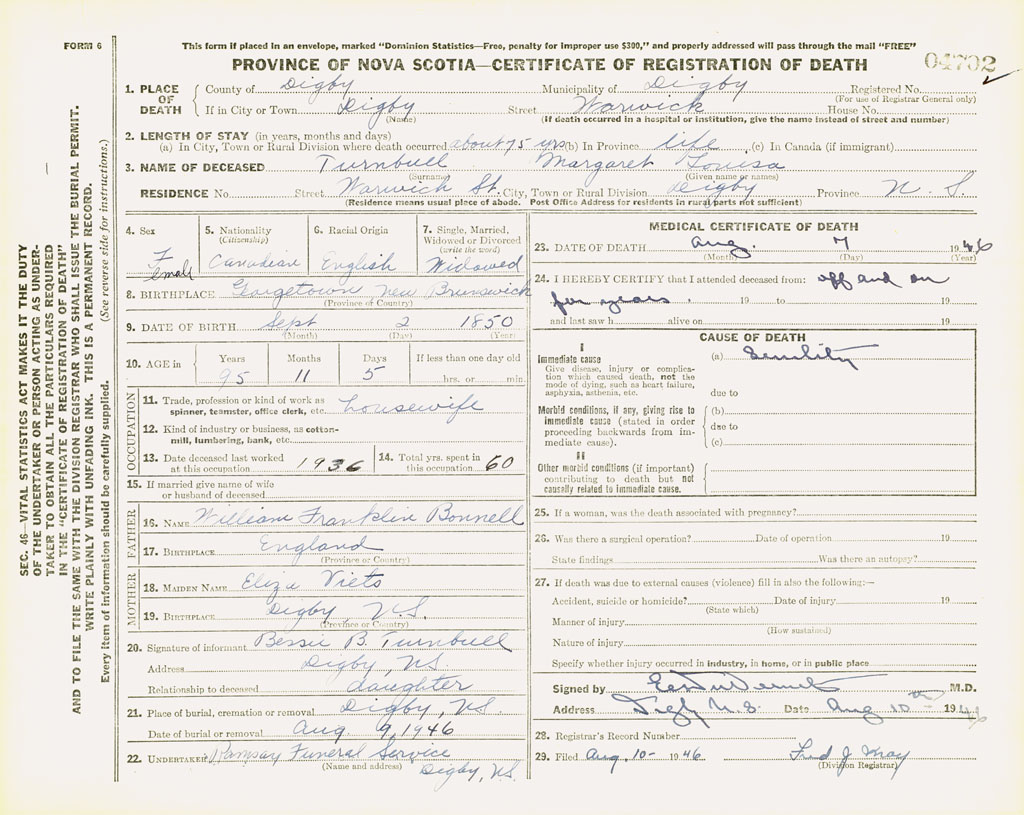 FORM 6
This form if placed in an envelope, marked "Dominion Statistics—Free, penalty for improper use $300," and properly addressed will pass through the mail "FREE"
PROVINCE OF NOVA SCOTIA—CERTIFICATE OF REGISTRATION OF DEATH
04702
1. PLACE OF DEATH
County of Digby Municipality of Digby Registered No.
(For use of Registrar General only)
If in City or Town Digby Street Warwick House No.
(Name) (If death occurred in a hospital or institution, give the name instead of street and number)
2. LENGTH OF STAY (in years, months and days)
(a) In City, Town or Rural Division where death occurred about 75 yrs (b) In Province life (c) In Canada (if immigrant)
3. NAME OF DECEASED Turnbull Margaret Louisa
(Surname) (Given name or names)
RESIDENCE No. Street Warwick St. City, Town or Rural Division Digby Province N. S.
(Residence means usual place of abode. Post Office Address for residents in rural parts not sufficient)
4. Sex Female
5. Nationality (Citizenship) Canadian
6. Racial Origin English
7. Single, Married, Widowed or Divorced (write the word) Widowed
8. BIRTHPLACE Gorgetown New Brunswick
(Province or Country)
9. DATE OF BIRTH Sept 2 1850
(Month) (Day) (Year)
10. AGE in Years Months Days If less than one day old
95 11 5 hrs. or min.
OCCUPATION
11. Trade, profession or kind of work as spinner, teamster, office clerk, etc. housewife
12. Kind of industry or business, as cotton-mill, lumbering, bank, etc.
13. Date deceased last worked at this occupation 1936
14. Total yrs. spent in this occupation 60
15. If married give name of wife or husband of deceased
FATHER
16. NAME William Franklin Bonnell
17. BIRTHPLACE England
(Province or Country)
MOTHER
18. MAIDEN NAME Eliza Viets
19. BIRTHPLACE Digby, N.S.
(Province or Country)
20. Signature of informant Bessie B. Turnbull
Address Digby, NS
Relationship to deceased daughter
21. Place of burial, cremation or removal Digby, N.S.
Date of burial or removal Aug. 9, 1946
22. UNDERTAKER Ramsay Funeral Service
(Name and address) Digby, N.S.
MEDICAL CERTIFICATE OF DEATH
23. DATE OF DEATH Aug. 7 1946
(Month) (Day) (Year)
24. I HEREBY CERTIFY that I attended deceased from: off and on
for years. 19 to 19
and last saw h alive on 19
CAUSE OF DEATH
I
Immediate cause (a) Senility
Give disease, injury or complication which caused death, not the mode of dying, such as heart failure, asphyxia, asthenia, etc.
due to
Morbid conditions, if any, giving rise to immediate cause (stated in order proceeding backwards from immediate cause).
(b)
due to
(c)
II
Other morbid conditions (if important) contributing to death but not causally related to immediate cause.
25. If a woman, was the death associated with pregnancy?
26. Was there a surgical operation? Date of operation 19
State findings Was there an autopsy?
27. If death was due to external causes (violence) fill in also the following:—
Accident, suicide or homicide? Date of injury 19
(State which)
Manner of injury
(How sustained)
Nature of injury
Specify whether injury occurred in industry, in home, or in public place
Signed by M.D.
Address Digby N.S. Date Aug 10 1946
28. Registrar's Record Number
29. Filed Aug. 10- 1946 Fred J.
(Division Registrar)
SEC. 46—VITAL STATISTICS ACT MAKES IT THE DUTY
OF THE UNDERTAKER OR PERSON ACTING AS UNDER-
TAKER TO OBTAIN ALL THE PARTICULARS REQUIRED
IN THE "CERTIFICATE OF REGISTRATION OF DEATH"
AND TO FILE THE SAME WITH THE DIVISION REGISTRAR WHO SHALL ISSUE THE BURIAL PERMIT.
WRITE PLAINLY WITH UNFADING INK. THIS IS A PERMANENT RECORD.
Every item of information should be carefully supplied. (See reverse side for instructions.)